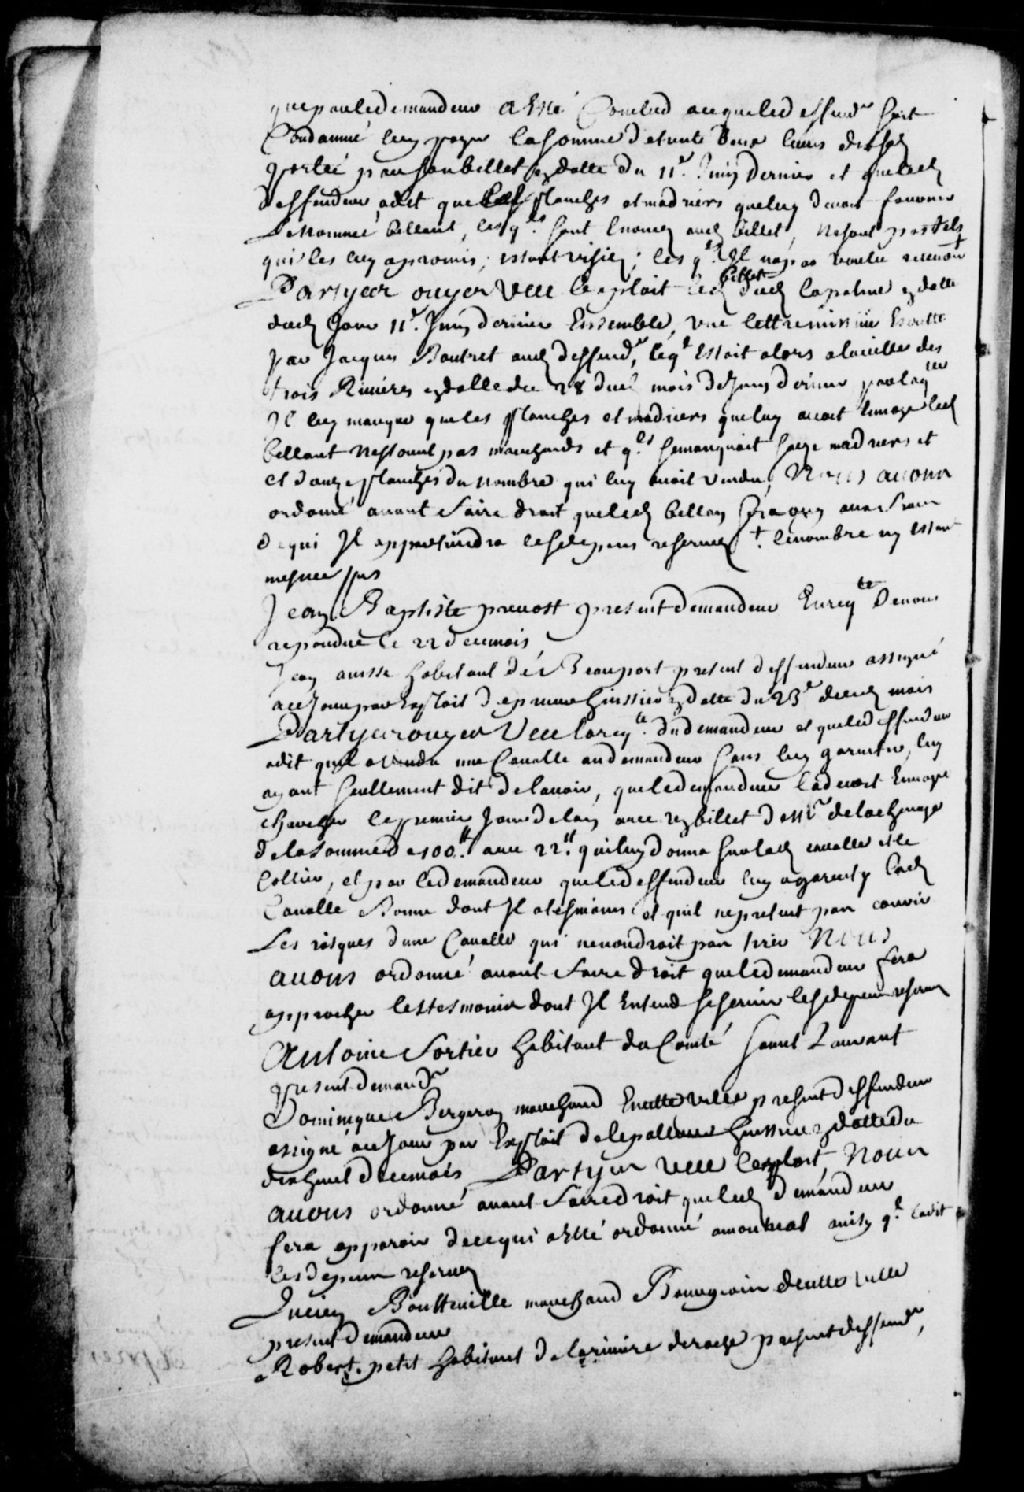 que par led demandeur a esté Conclud a ce que led deffend.r soit
Condamné luy payer la somme de trente deux livres du sol
porté par son billet en datte du 11.e Juin dernier et que led
deffendeur a dit que les planches et madriers que luy devoit fournir
Le nommé billant, lesq.ls sont enoncez aud billet, ne sont pas tels
qu'il les luy a promis, estant visiez; lesq.ls Il n'a pas voulu recevoir
Partyes ouyes Veu l'exploit led billet dud la palme en datte
dud Jour 11.e Juin dernier Ensemble, une lettre missive Escritte
par Jacques Boutret aud deffend.r leq.l estoit alors a la ville des
trois Rivieres en datte du 28 dud mois de Juin dernier par laq.lle
Il luy marque que les planches et madriers que luy avoit envoyé led
billant ne sont pas marchands et q.l s'en manquoit seize madriers et
et d'onze planches du nombre qu'il luy avoit vendu, Nous avons
ordonné avant faire droit que led billan
de qui Il apprehendra les depens reservez †. le nombre en estant
mesme pas
Jean Baptiste prevost present demandeur En req.te de nous
repondue le 22 de ce mois
Jean habitant de Beauport present deffendeur assigné
a ce Jour par Exploit de prieur huissier en datte du 23.e dud mois
Partyes ouyes Veu la req.te du demandeur et que led deffendeur
a dit qu'il a vendu une Cavalle au demandeur sans luy garantir, luy
ayant seullement dit de la voir, que le demandeur la devoit Envoyer
chercher le premier Jour de l'an avec un billet de M.r de la chenaye
de la somme de 100.tt avec 22.tt qu'il luy donna sur lad cavalle et le
Collier, et par led demandeur que led deffendeur luy a garenty lad
Cavalle Bonne dont Il a tesmoins et qu'il ne pretent pas courir
Les risques d'une Cavalle qui ne voudroit pas tirer Nous
avons ordonné avant faire droit que le demandeur fera
approcher les tesmoins dont Il Entend se servir les depens reservez
Antoine Fortier habitant du Comté Saint Laurant
present demand.r
Dominique Bergeron marchand En cette ville present deffendeur
assigné a ce Jour par Exploit de le pallieur huissier en datte du
dix huict de ce mois Partyes veu l'exploit, Nous
avons ordonné avant faire droit que led demandeur
fera apparoir de ce qui a esté ordonné a montreal ainsy q.l l'a dit
les depens reservez
Lucien Boutteville marchand Bourgeois de cette ville
present demandeur
Robert petit habitant de la riviere de roche present deffend.r,